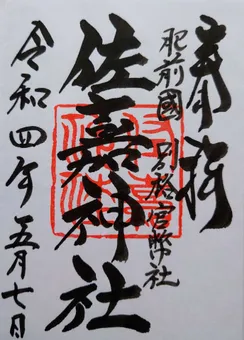 奉拝
肥前國 別格官幣社
佐嘉神社
令和四年五月七日